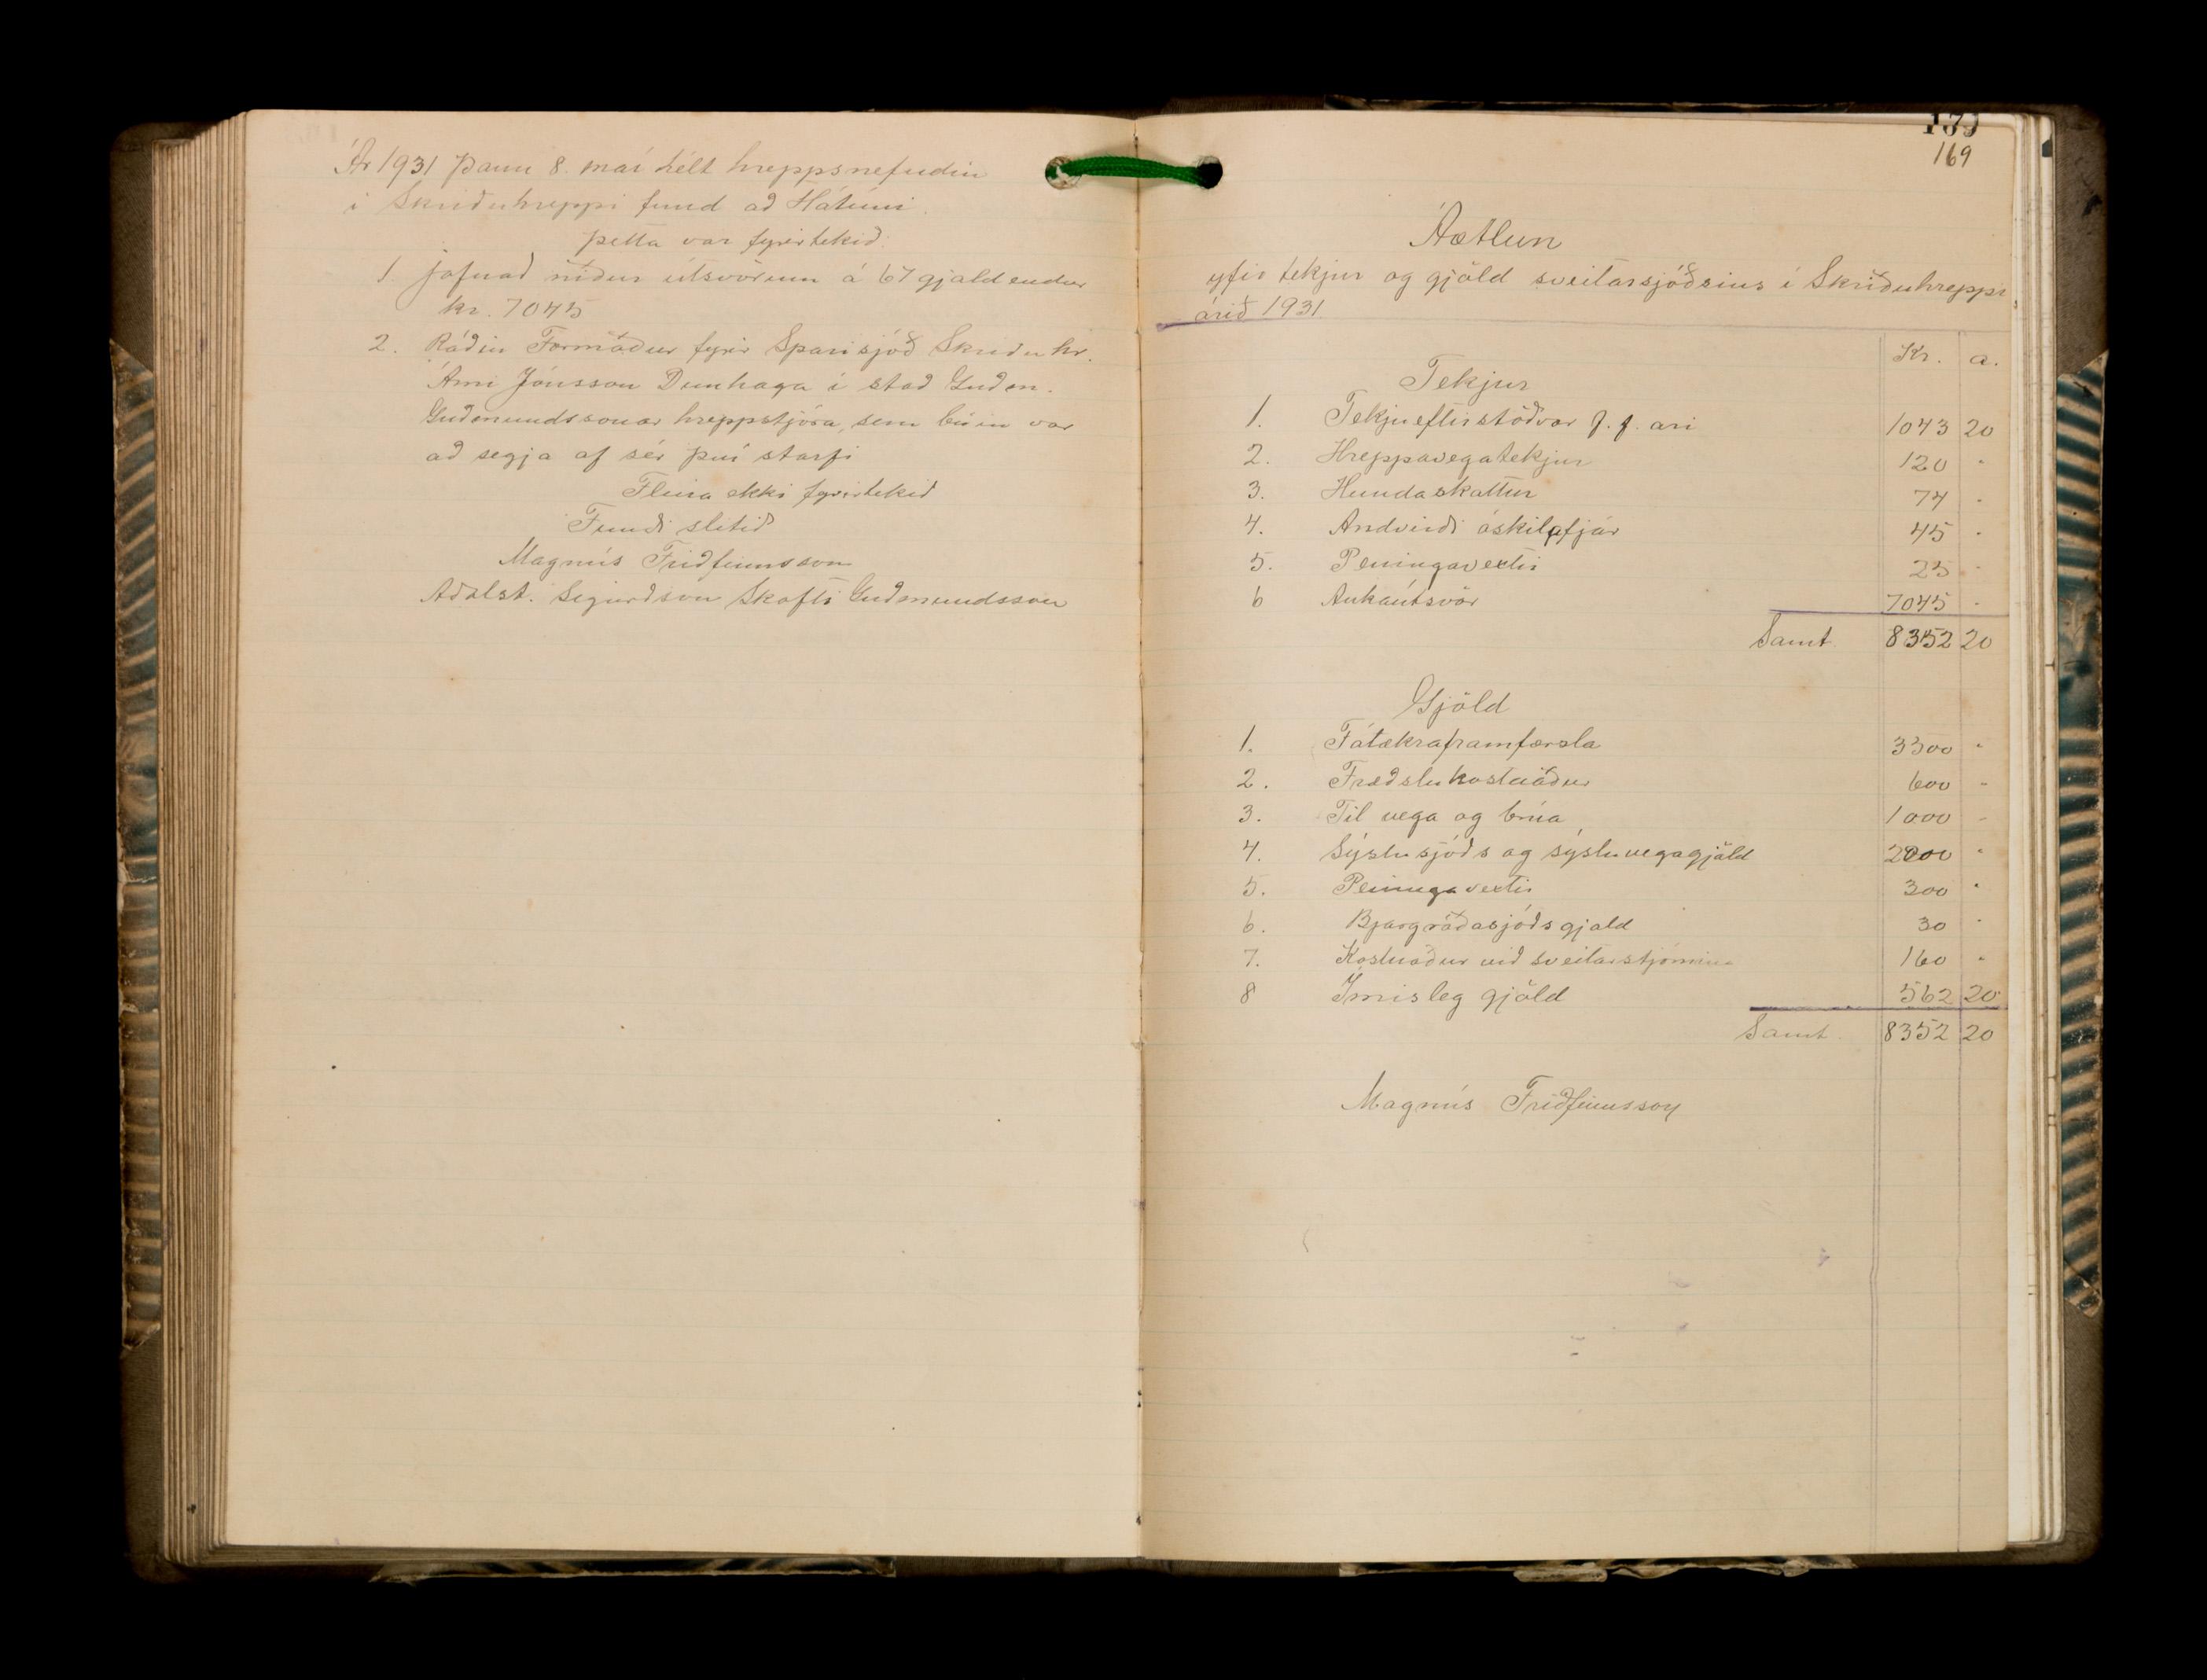 Ár 1931 þann 8. maí hélt hreppsnefndin
í Skriðuhreppi fund að Hátúni.
Þetta var fyrirtekið:
1. Jafnað niður útsvörum á 67 gjaldendur
kr. 7045
2. Ráðin Formaður fyrir Sparisjóð Skriðuhr.
Árni Jónsson Dunhaga í stað Guðm.
Guðmundssonar hreppstjóra, sem búin var
að segja af sér því starfi
Fleira ekki fyrirtekið
Fundi slitið
Magnús Friðfinnsson
Aðalst. Sigurðsson Skafti Guðmundsson
139
169
Áætlun
yfir tekjur og gjöld sveitarsjóðsins í Skriðuhreppi
árið 1931.
Kr. a.
Tekjur
1. Tekjueftirstöðvar f. f. ári 1043 20
2. Hreppavegatekjur 120 "
3. Hundaskattur 74 "
4. Andvirði óskilafjár 45 "
5. Peningavextir 25 "
6 Aukaútsvör 7045 "
Samt 8352 20
Gjöld
1. Fátækraframfærsla 3300 "
2. Fræðslukostnaður 600 "
3. Til vega og brúa 1000 "
4. Sýslusjóðs og sýsluvegagjöld 2000 "
5. Peningavextir 300 "
6. Bjargráðasjóðsgjald 30 "
7. Kostnaður við sveitarstjórnina 160 "
8 Ýmisleg gjöld 562 20
Samt. 8352 20
Magnús Friðfinnsson